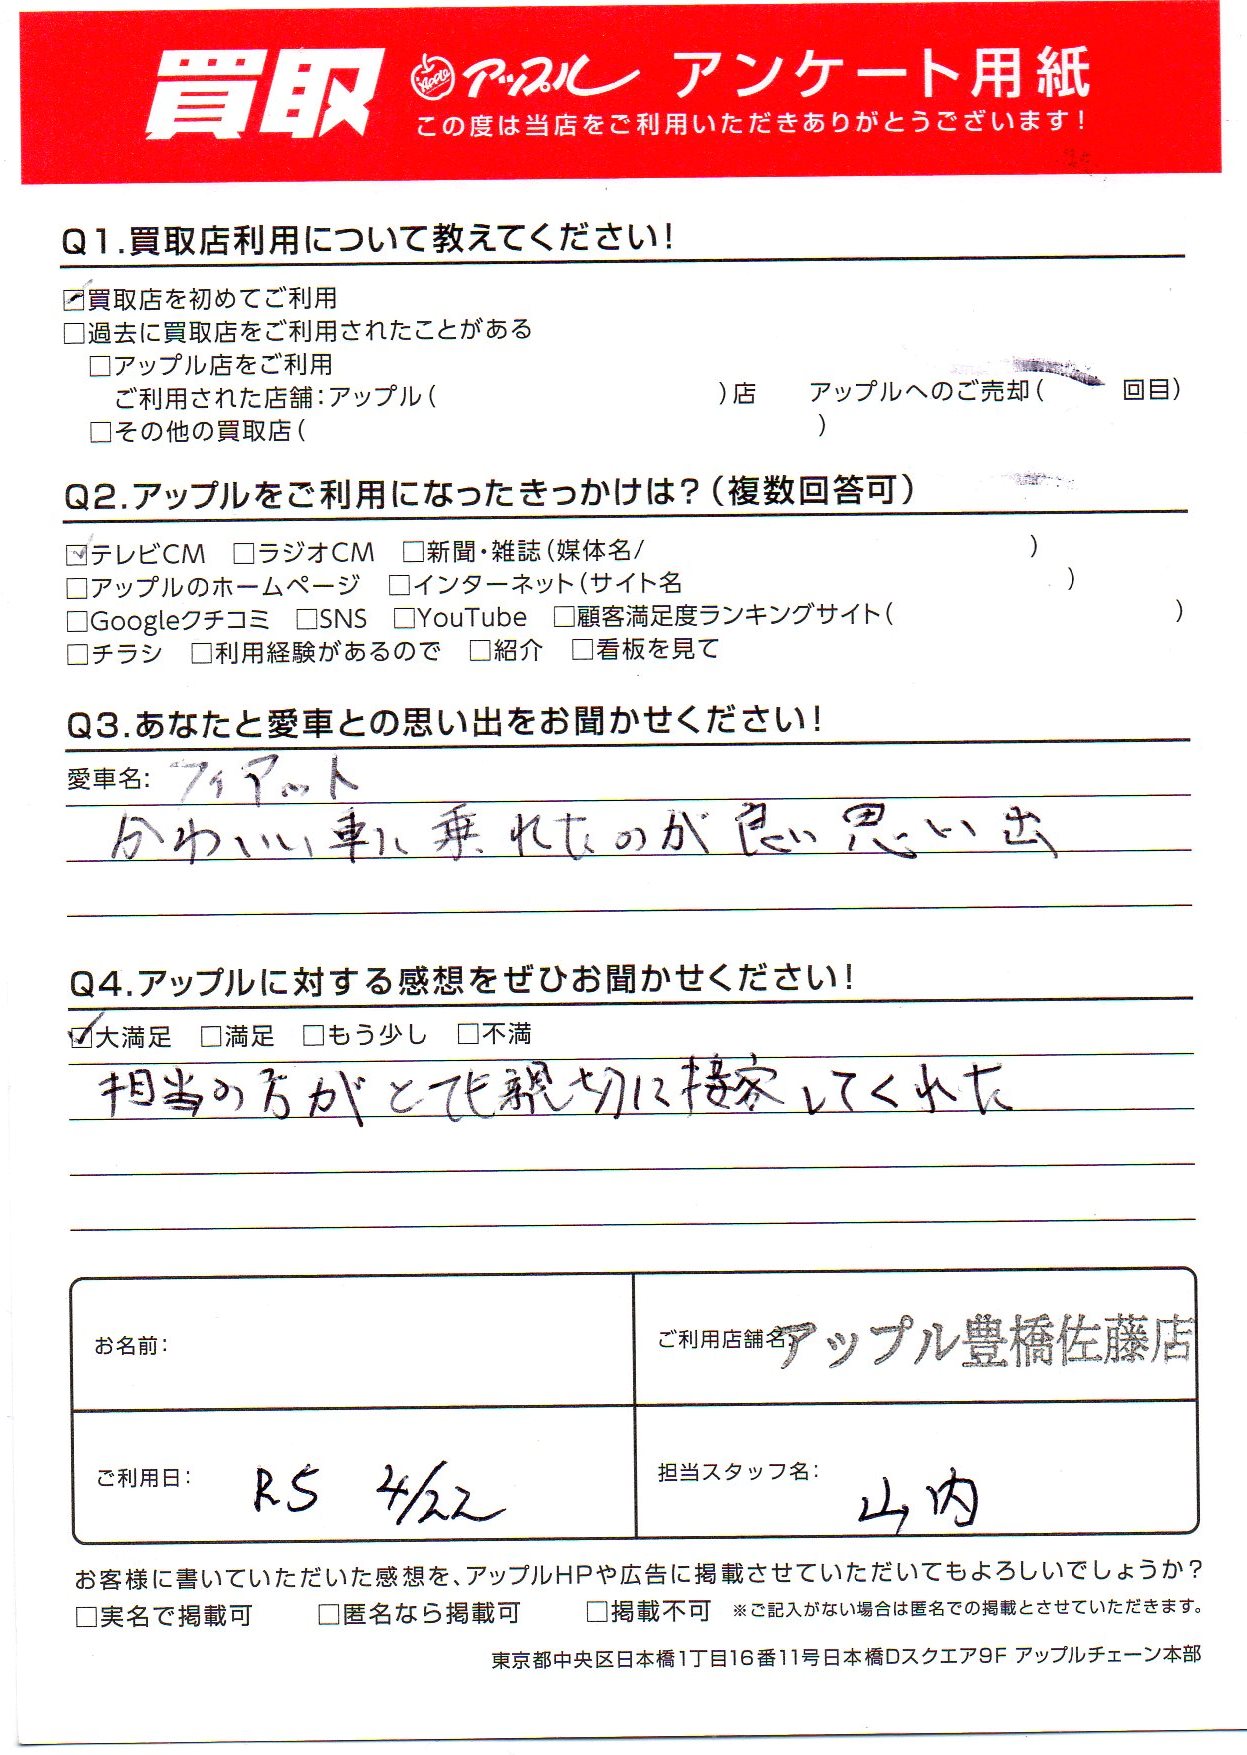 買取 Apple アップル アンケート用紙
この度は当店をご利用いただきありがとうございます!
Q1.買取店利用について教えてください!
☑買取店を初めてご利用
□過去に買取店をご利用されたことがある
□アップル店をご利用
ご利用された店舗:アップル( )店 アップルへのご売却( 回目)
□その他の買取店( )
Q2.アップルをご利用になったきっかけは?(複数回答可)
☑テレビCM □ラジオCM □新聞・雑誌(媒体名/ )
□アップルのホームページ □インターネット(サイト名 )
□Googleクチコミ □SNS □YouTube □顧客満足度ランキングサイト( )
□チラシ □利用経験があるので □紹介 □看板を見て
Q3.あなたと愛車との思い出をお聞かせください!
愛車名: フィアット
かわいい車に乗れたのが良い思い出
Q4.アップルに対する感想をぜひお聞かせください!
☑大満足 □満足 □もう少し □不満
担当の方がとても親切に接客してくれた
お名前: ご利用店舗名: アップル豊橋佐藤店
ご利用日: R5 4/22 担当スタッフ名: 山内
お客様に書いていただいた感想を、アップルHPや広告に掲載させていただいてもよろしいでしょうか?
□実名で掲載可 □匿名なら掲載可 □掲載不可 ※ご記入がない場合は匿名での掲載とさせていただきます。
東京都中央区日本橋1丁目16番11号日本橋Dスクエア9F アップルチェーン本部